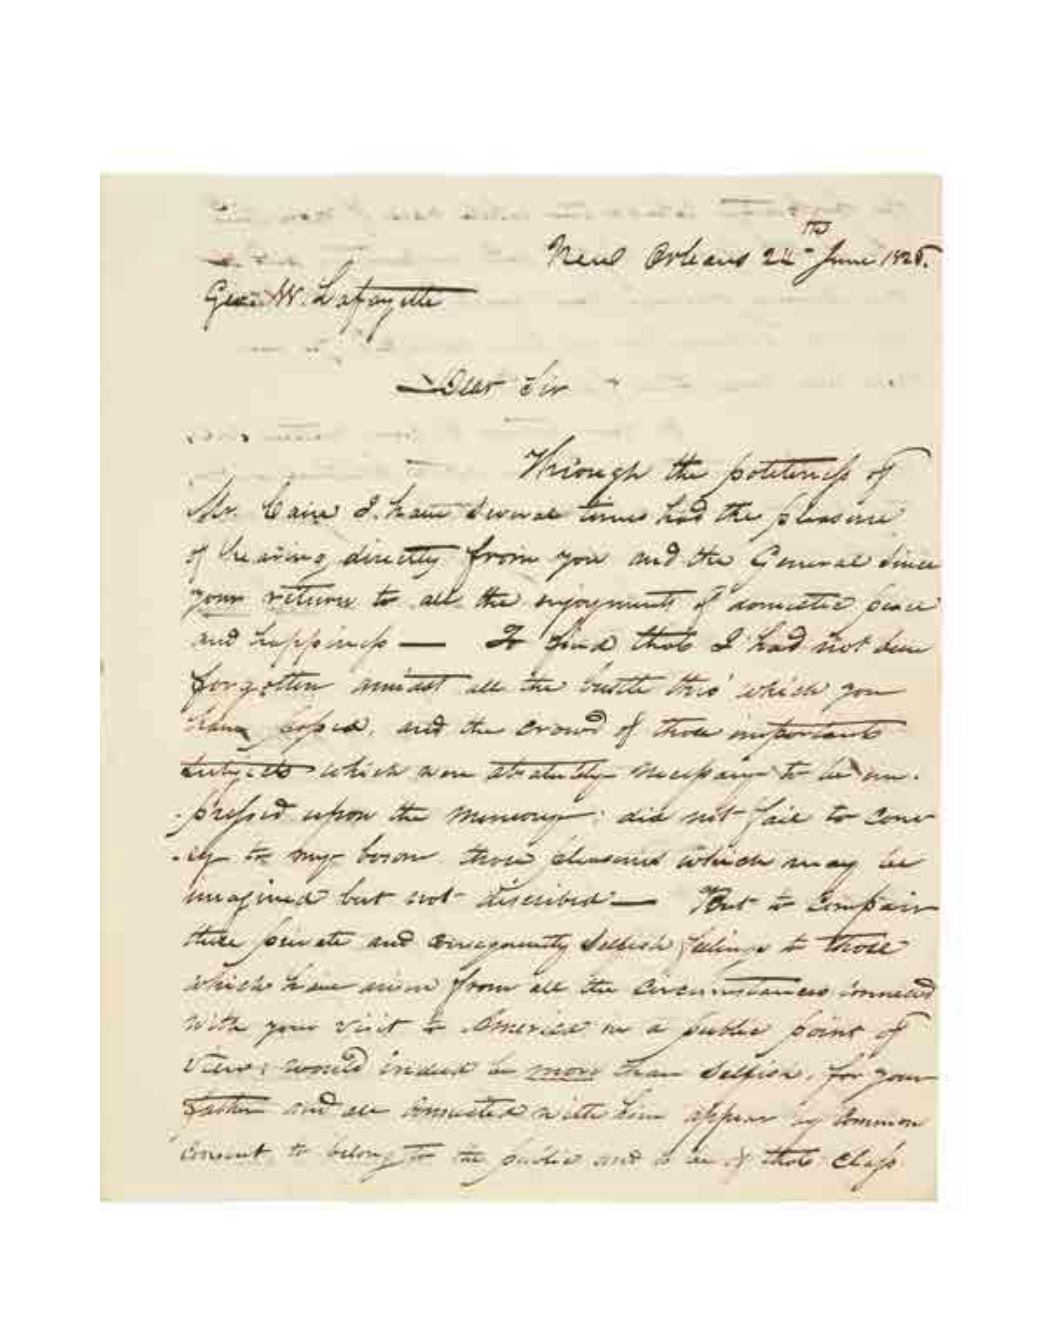 New Orleans 24th June 1826.
Geo. W. Lafayette
Dear Sir
Through the politeness of
Mr. Caire I have several times had the pleasure
of hearing directly from you and the General since
your return to all the enjoyments of domestic peace
and happiness — To find that I had not been
forgotten amidst all the bustle thro' which you
have and the crowd of those important
subjects which were absolutely necessary to be im-
pressed upon the memory: did not fail to conv-
-ey to my bosom those pleasures which may be
imagined but not discribed — But to compair
these private and consequently selfish feelings to those
which have arisen from all the circumstances connected
with your visit to America in a public point of
view; would indeed be more than selfish, for your
Father and all connected with him appear by common
consent to belong to the public and to be of that class